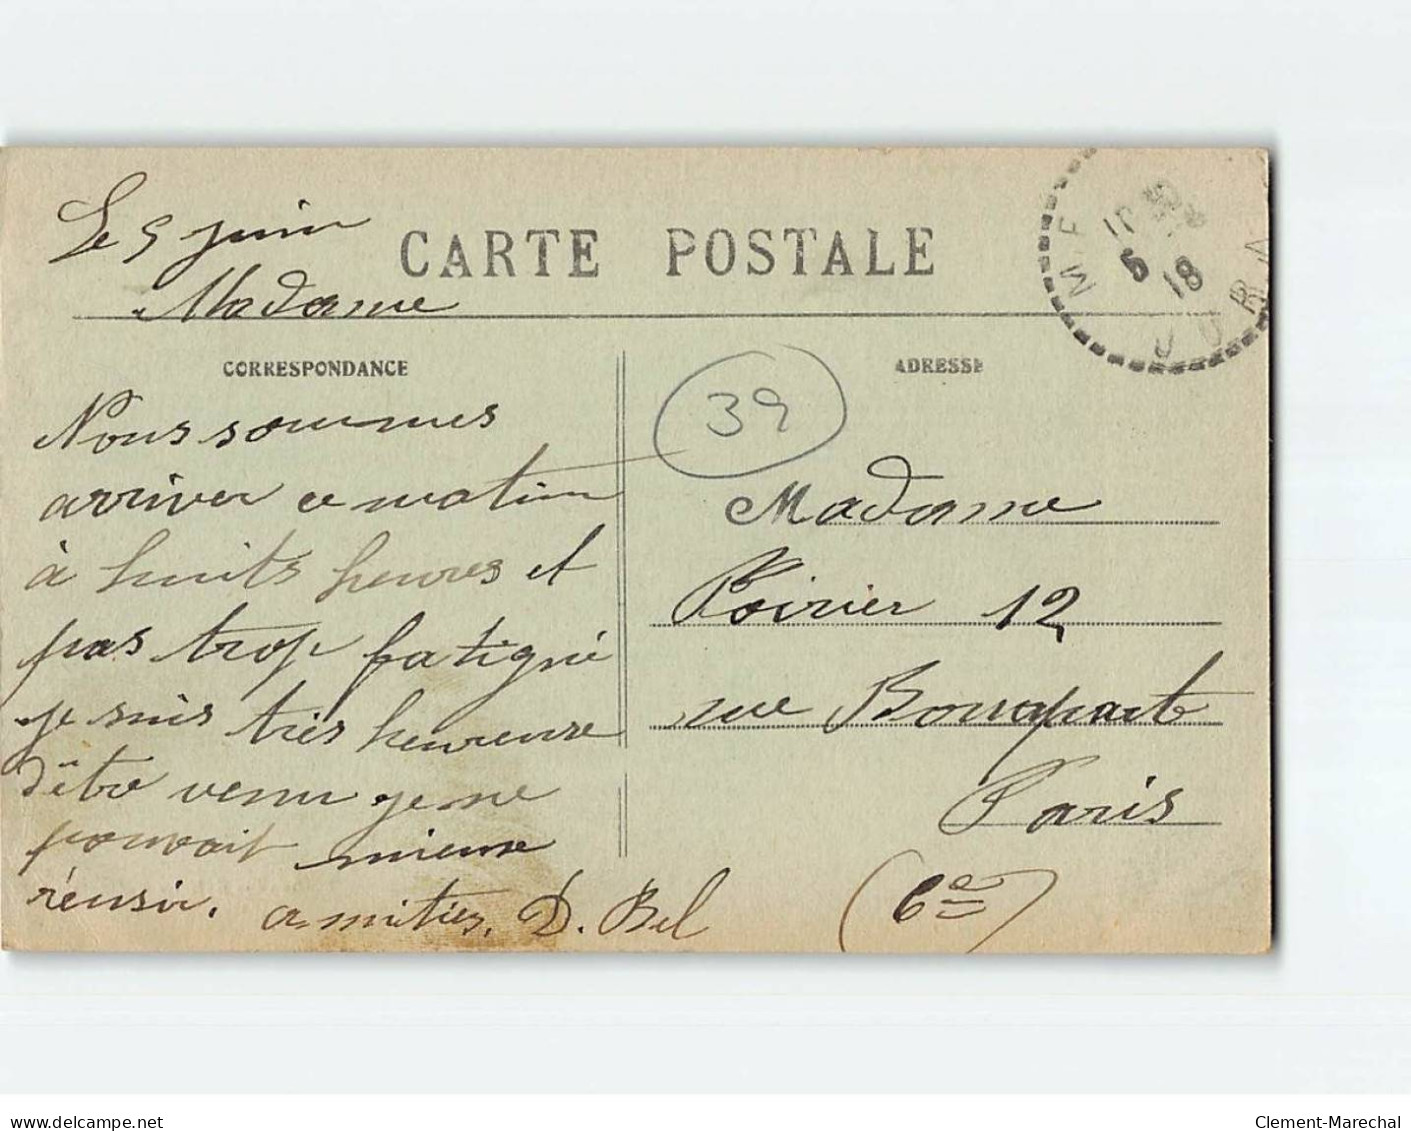 Le 5 juin
CARTE POSTALE
Madame
CORRESPONDANCE
Nous sommes
arriver ce matin
à huits heures et
pas trop fatigué
je suis très heureuse
d'être venu je ne
pouvait mieux
réussir. amitiés, D. Bel
ADRESSE
39
Madame
Poirier 12
rue Bonapart
Paris
(6e)
5 18
JURA
www.delcampe.net
Clement-Marechal